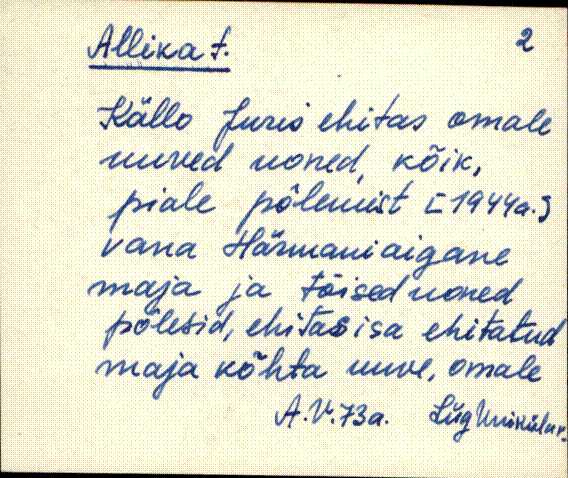 Allika t.
2
Källo Juris ehitas omale
uuved uoned, kõik,
piale põlemist [1944a.]
vana Härmani aigane
maja ja tõised uoned
põlesid, ehitas isa ehitatud
maja kõhta uuve, omale
A.V. 73a. Lüg